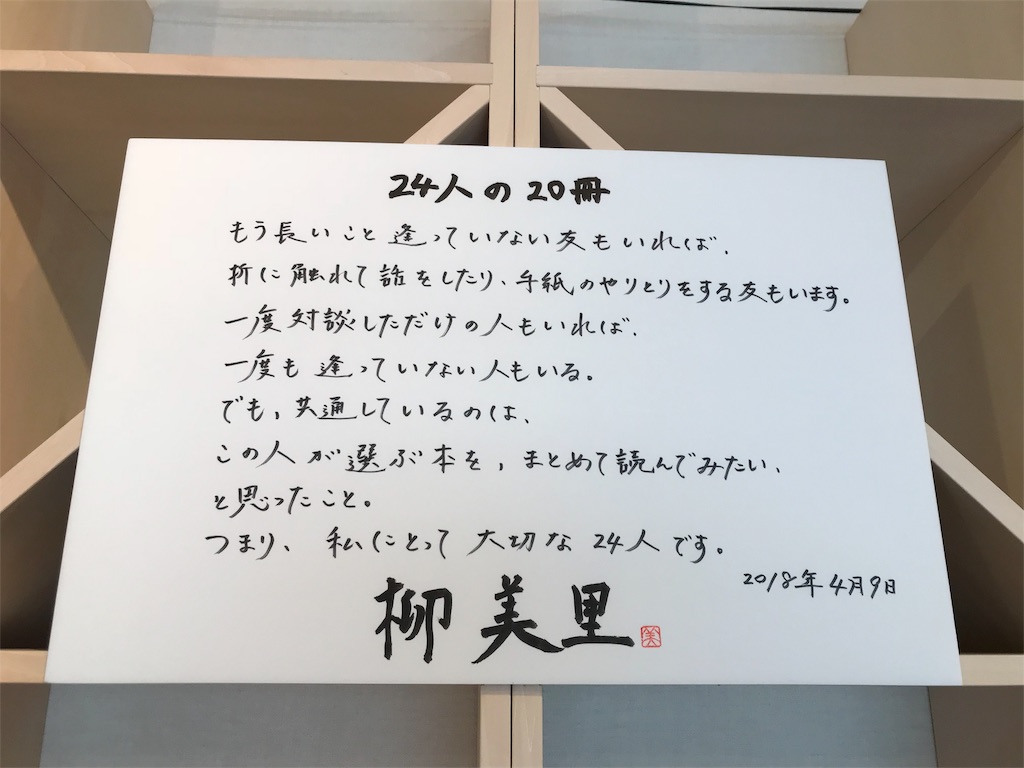 24人の20冊
もう長いこと逢っていない友もいれば、
折に触れて話をしたり、手紙のやりとりをする友もいます。
一度対談しただけの人もいれば、
一度も逢っていない人もいる。
でも、共通しているのは、
この人が選ぶ本を、まとめて読んでみたい、
と思ったこと。
つまり、私にとって大切な24人です。
2018年4月9日
柳美里
美